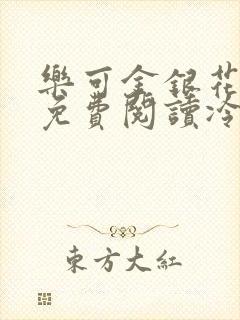 樂可金銀花
免費閱讀冷
東方大紅